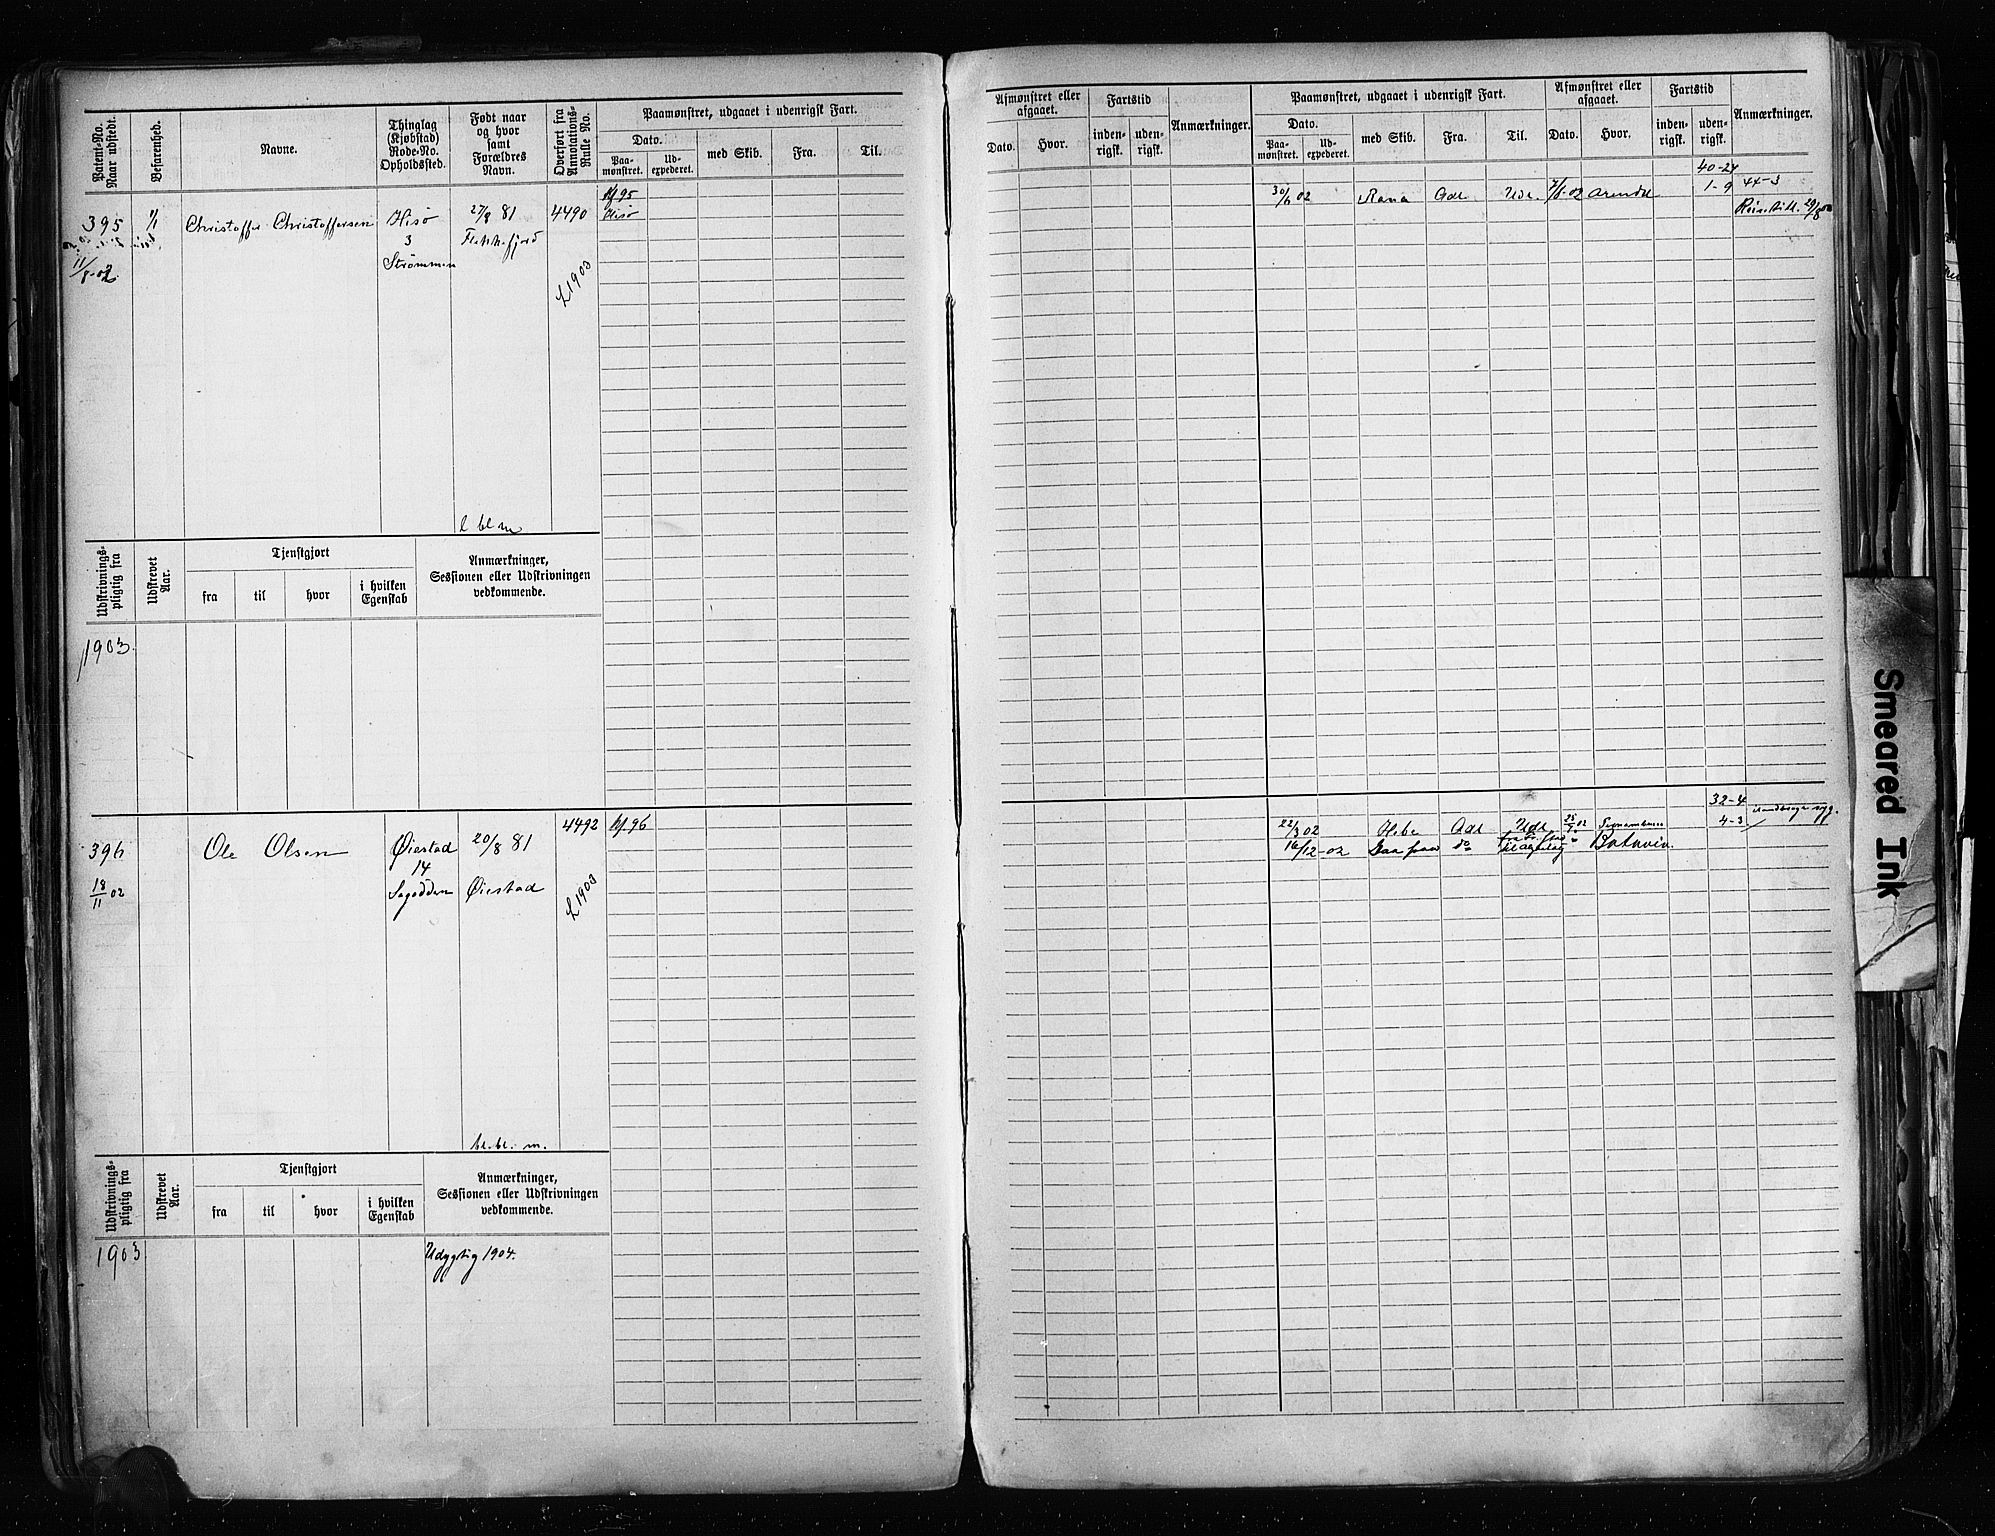 Patent-No. Naar udstedt.
Befarenhed.
Navne.
Thinglag (Kjøbstad) Rode-No. Opholdssted.
Født naar og hvor samt Forældres Navn.
Overført fra Annotations-Rulle No.
Paamønstret, udgaaet i udenrigsk Fart.
Dato.
Paa-mønstret.
Ud-expederet.
med Skib.
Fra.
Til.
395
1/1
Christoffer Christoffersen
Hisø
3
Strømmen
27/8 81
Flekkefjord
4490
£1903
11/8-02
Hisø
l bl m
Udskrivnings-pligtig fra
Udskrevet Aar.
Tjenstgjort
fra
til
hvor
i hvilken Egenskab
Anmærkninger, Sessionen eller Udskrivningen vedkommende.
1903
396
18/11 02
Ole Olsen
Øiestad
14
20/8 81
Øiestad
4492
£1903
bl. bl. m.
Udskrivnings-pligtig fra
Udskrevet Aar.
Tjenstgjort
fra
til
hvor
i hvilken Egenskab
Anmærkninger, Sessionen eller Udskrivningen vedkommende.
1903
Udygtig 1904.
Afmønstret eller afgaaet.
Dato.
Hvor.
Fartstid
inden-rigsk.
uden-rigsk.
Anmærkninger.
Paamønstret, udgaaet i udenrigsk Fart.
Dato.
Paa-mønstret.
Ud-expederet.
med Skib.
Fra.
Til.
Afmønstret eller afgaaet.
Dato.
Hvor.
Fartstid
inden-rigsk.
uden-rigsk.
Anmærkninger.
40-24
30/6 02
Rana
Adl
Udl.
7/8-02
Arendal
1-9
44-3
32-4
22/3 02
Hebe
Adl
Udl
4-3
16/12-02
do
Batavia
Smeared Ink